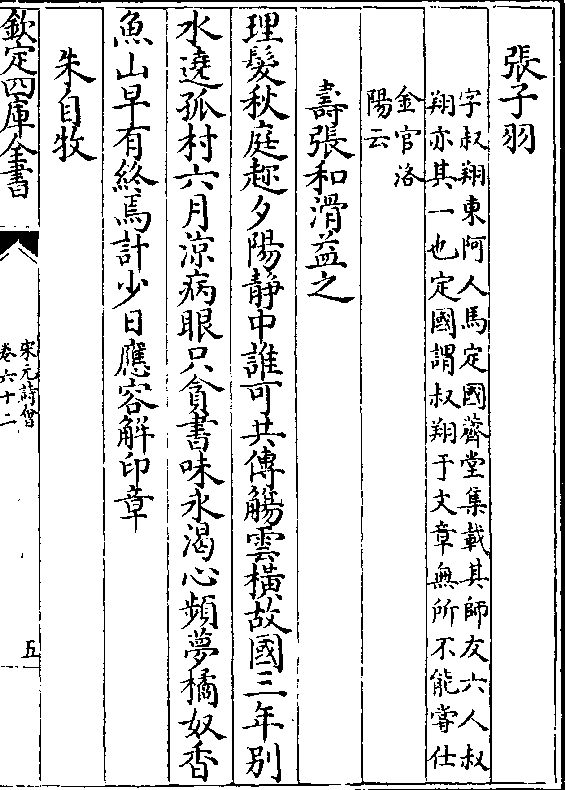 張子羽
字叔翔東阿人馬定國薺堂集載其師友六人叔
翔亦其一也定國謂叔翔于文章無所不能嘗仕
金官洛
陽云
壽張和滑益之
理髮秋庭趂夕陽靜中誰可共傳觴雲橫故國三年別
水遶孤村六月涼病眼只貪書味永渴心頻夢橘奴香
魚山早有終焉計少日應容解印章
朱自牧
欽定四庫全書
宋元詩會
卷六十二
五